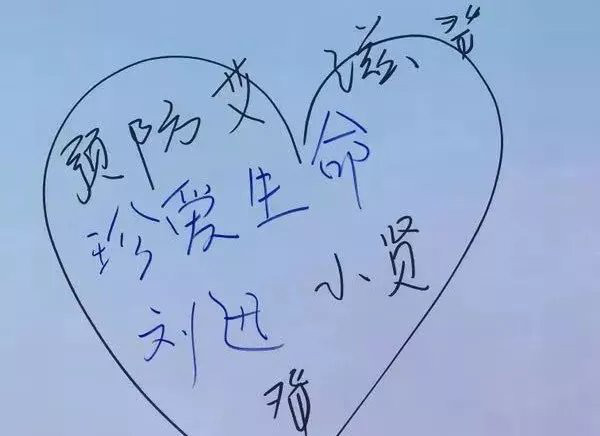 预防艾滋
珍爱生命
刘迅 小贤